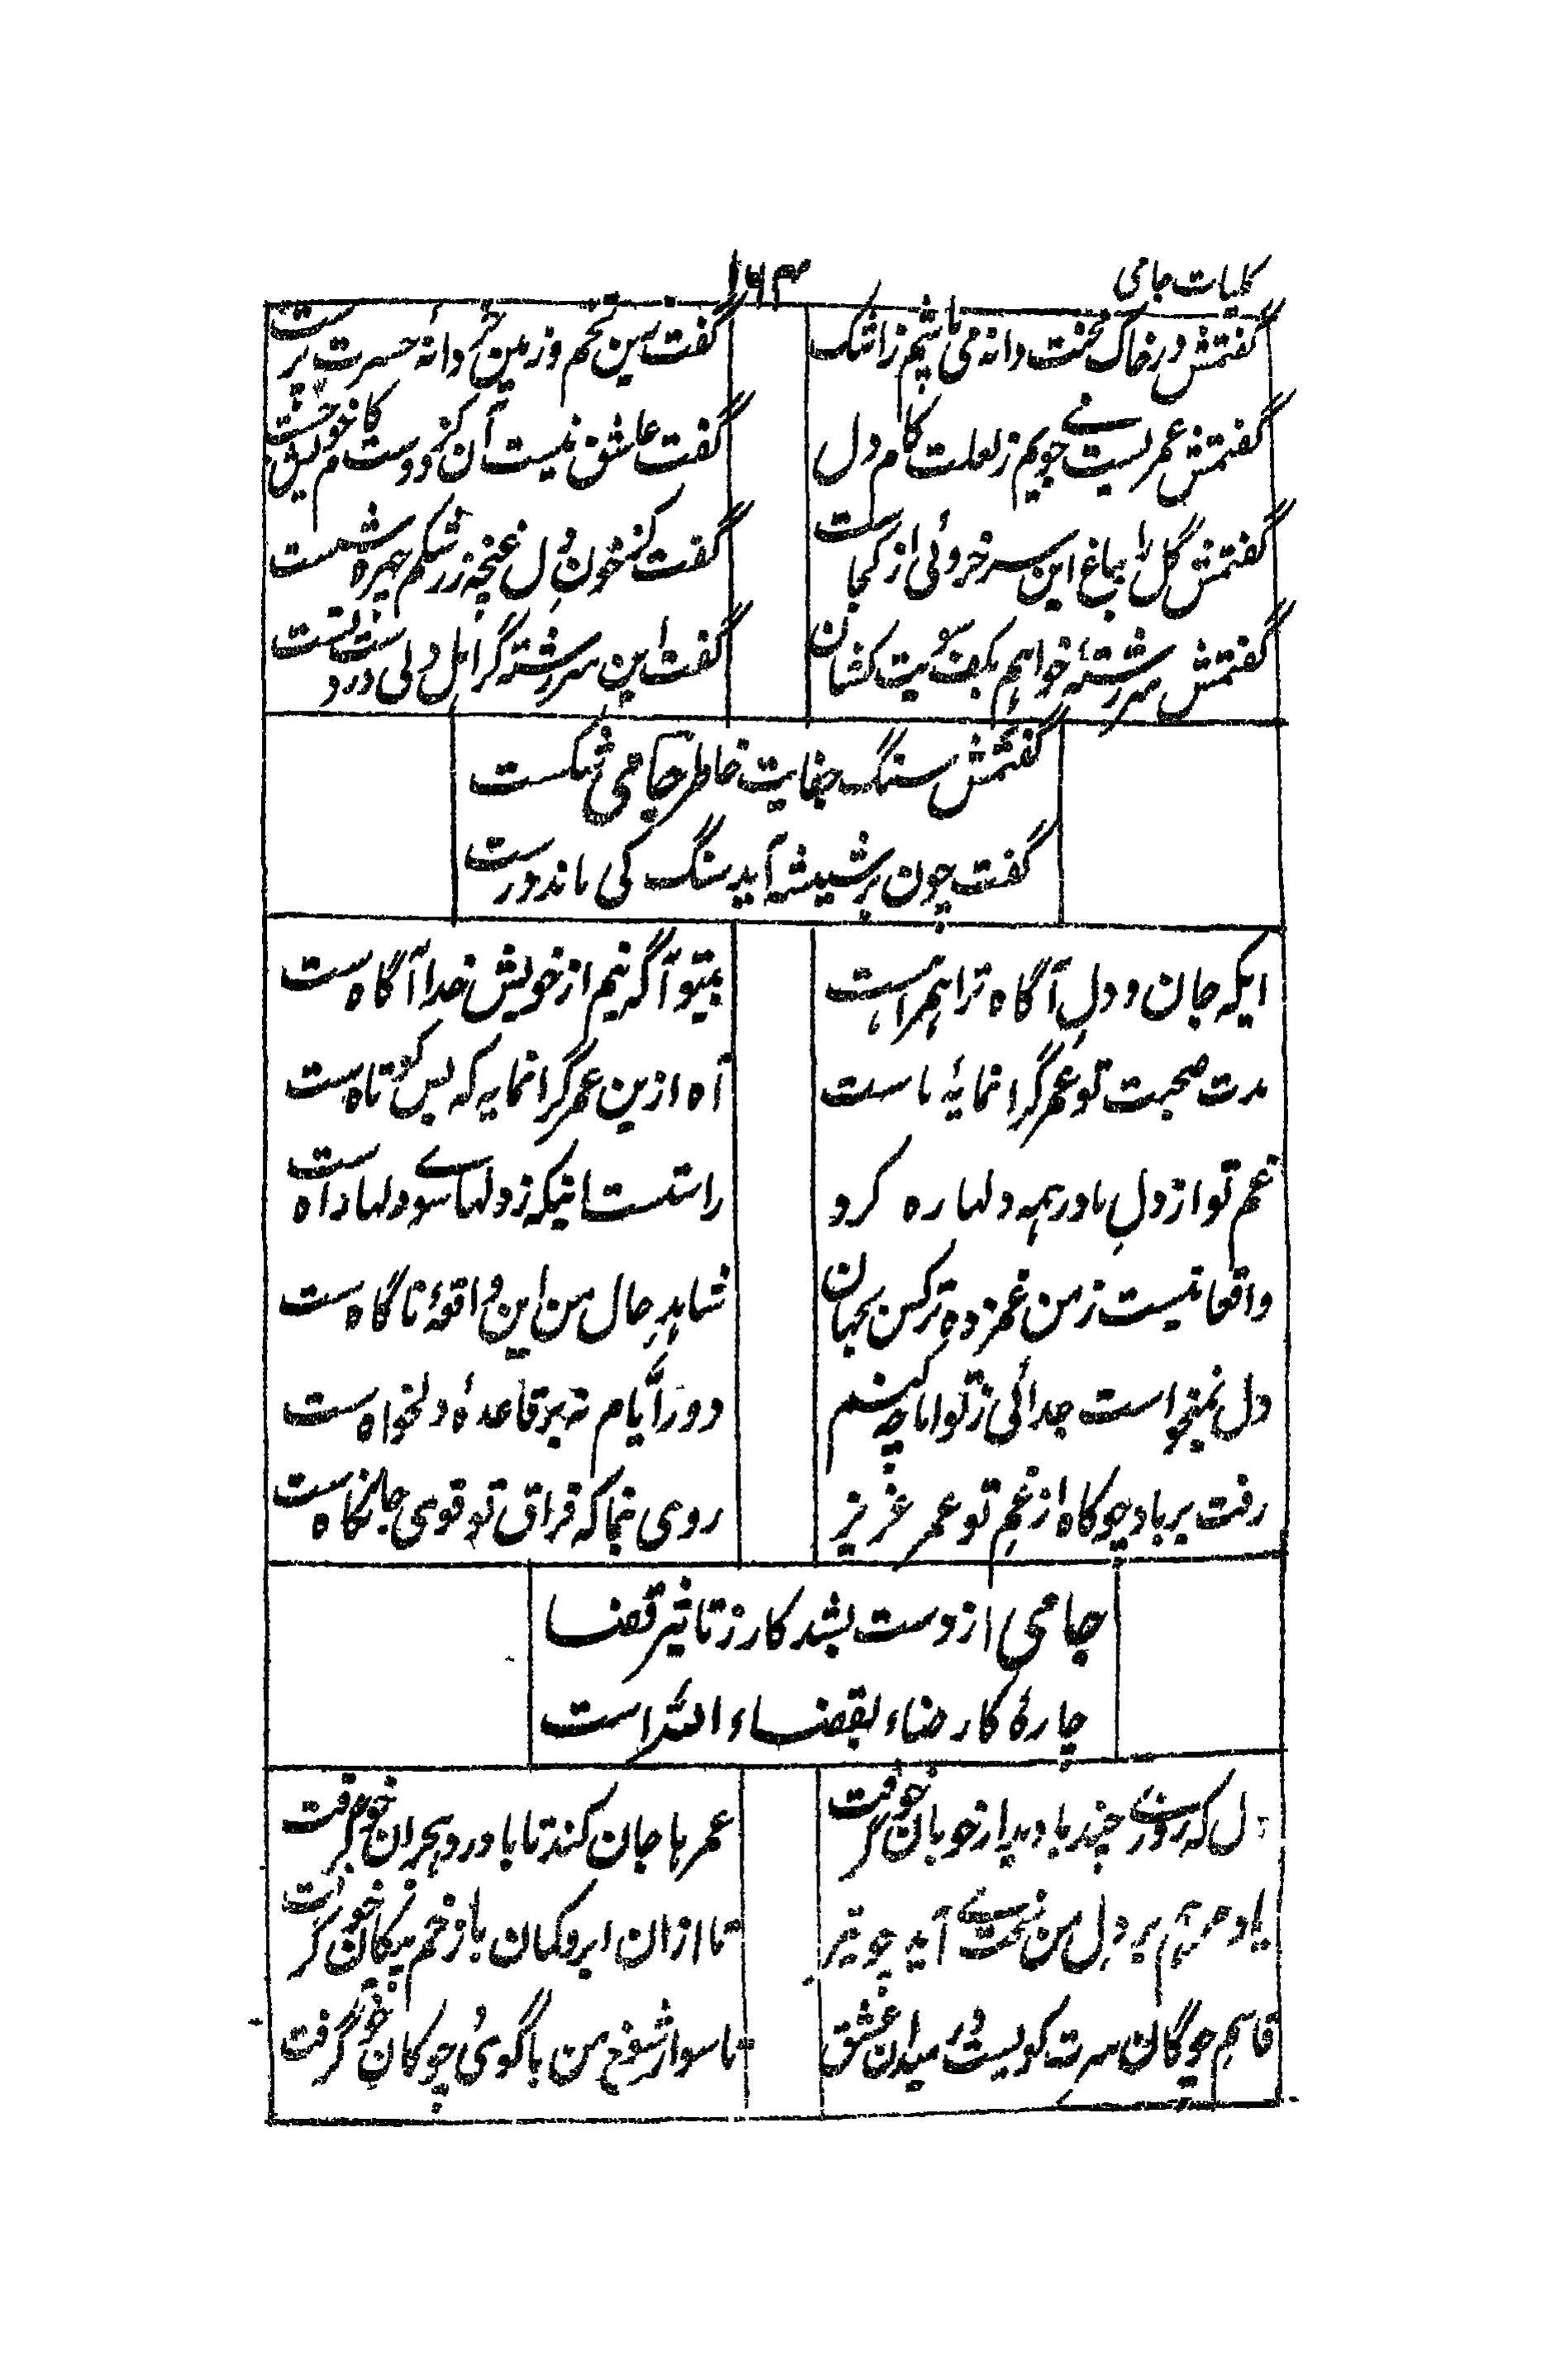 کلیات جامی
۱۶۴
گفتمش در خاک محنت دانه می پاشم ز اشک
گفت بس تخم وزمین دانهٔ حسرت برست
گفتمش عمریست می جویم ز لعلت کام دل
گفت عاشق نیست آن کز دوست کام خویش جست
گفتمش گل را بباغ این سرخروئی از کجاست
گفت کز خون دل غنچه ز رشکم چهره شست
گفتمش سررشتهٔ خواهم بکف سویت کشان
گفت این سررشته گر اهل دلی در دست تست
گفتمش سنگ جفایت خاطر جامی شکست
گفت چون بر شیشه آید سنگ کی ماند درست
ایکه جان و دل آگاه ترا همراهست
بیتو آگه نیم از خویش خدا آگاهست
مدت صحبت تو عمر گرانمایهٔ ماست
آه ازین عمر گرانمایه که بس کوتاهست
غم تو از دل ما در همه دلها ره کرد
راستست اینکه ز دلها سوے دلها راهست
واقعا نیست ز من غمزده تر کس بجهان
شاهدِ حال من این واقعهٔ ناگاهست
دل نمیخواست جدائی ز تو اما چه کنم
دور ایام نه بر قاعدهٔ دلخواهست
رفت بر باد چو کاه از غمِ تو عمر عزیز
روی بنما که فراق تو قوی جانکاهست
جامی از دست بشد کار ز تاثیر قضا
چارهٔ کار رضاء بقضاء اللّه است
دل که روزے چند با دیدار خوبان خو گرفت
عمرها جان کند تا با درد هجران خو گرفت
یاد مرهم بر دل من سخت مے آید چو تیر
تا ازان ابروکمان با زخم پیکان خو گرفت
قامتم چوگان سرم گویست در میدان عشق
تا سوار شوخ من با گوی و چوگان خو گرفت